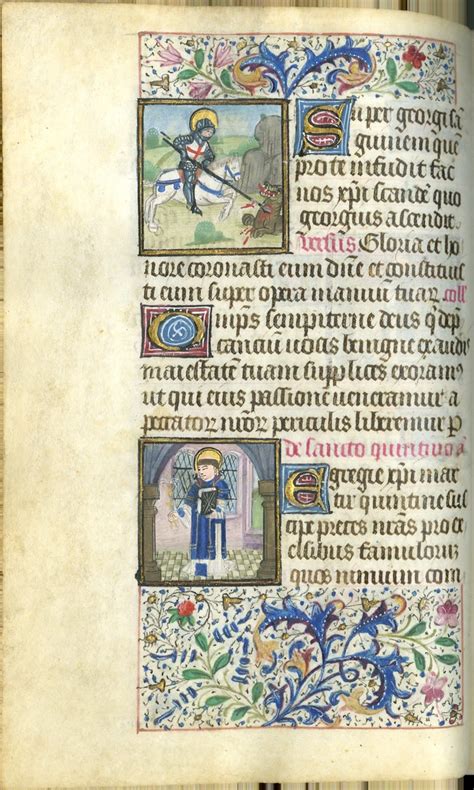 Super georgi sa
guinem que
pro te infudit fac
nos xpi scande quo
georgius ascendit
versus. Gloria et ho
nore coronasti eum dñe et constituis
ti eum super opera manuū tuar. coll
Omps sempiterne deus q dep
cantiū voces benigne exaudis
maiestatē tuam supplices exoram
ut qui eius passionē veneramur a
peccatorū nrōr periculis liberemur p
de sancto quintino a
Egregie xpi mar
tir quintine sus
cipe preces nrās pro ex
celsibus famulorū
ques nimium com